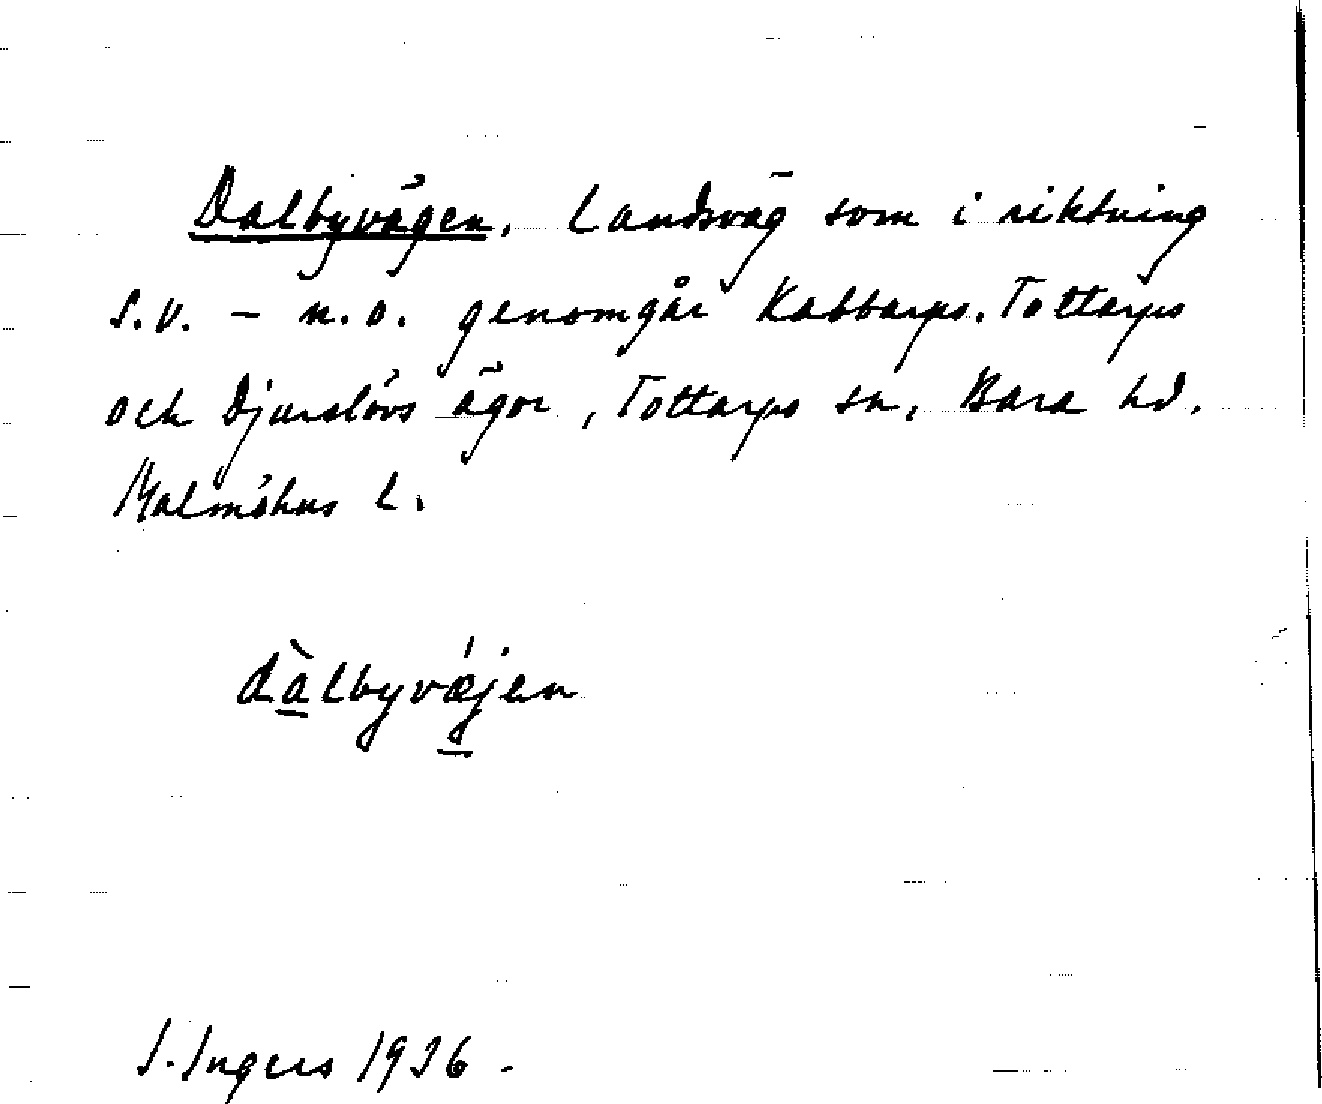 Dalbyvägen. Landsväg som i riktning
s.v. - n.o. genomgår Kabbarps. Tottarps
och Djurslövs ägor, Tottarps sn, Bara hd.
Malmöhus l.
dàlbyvǽjen
I. Ingers 1936.